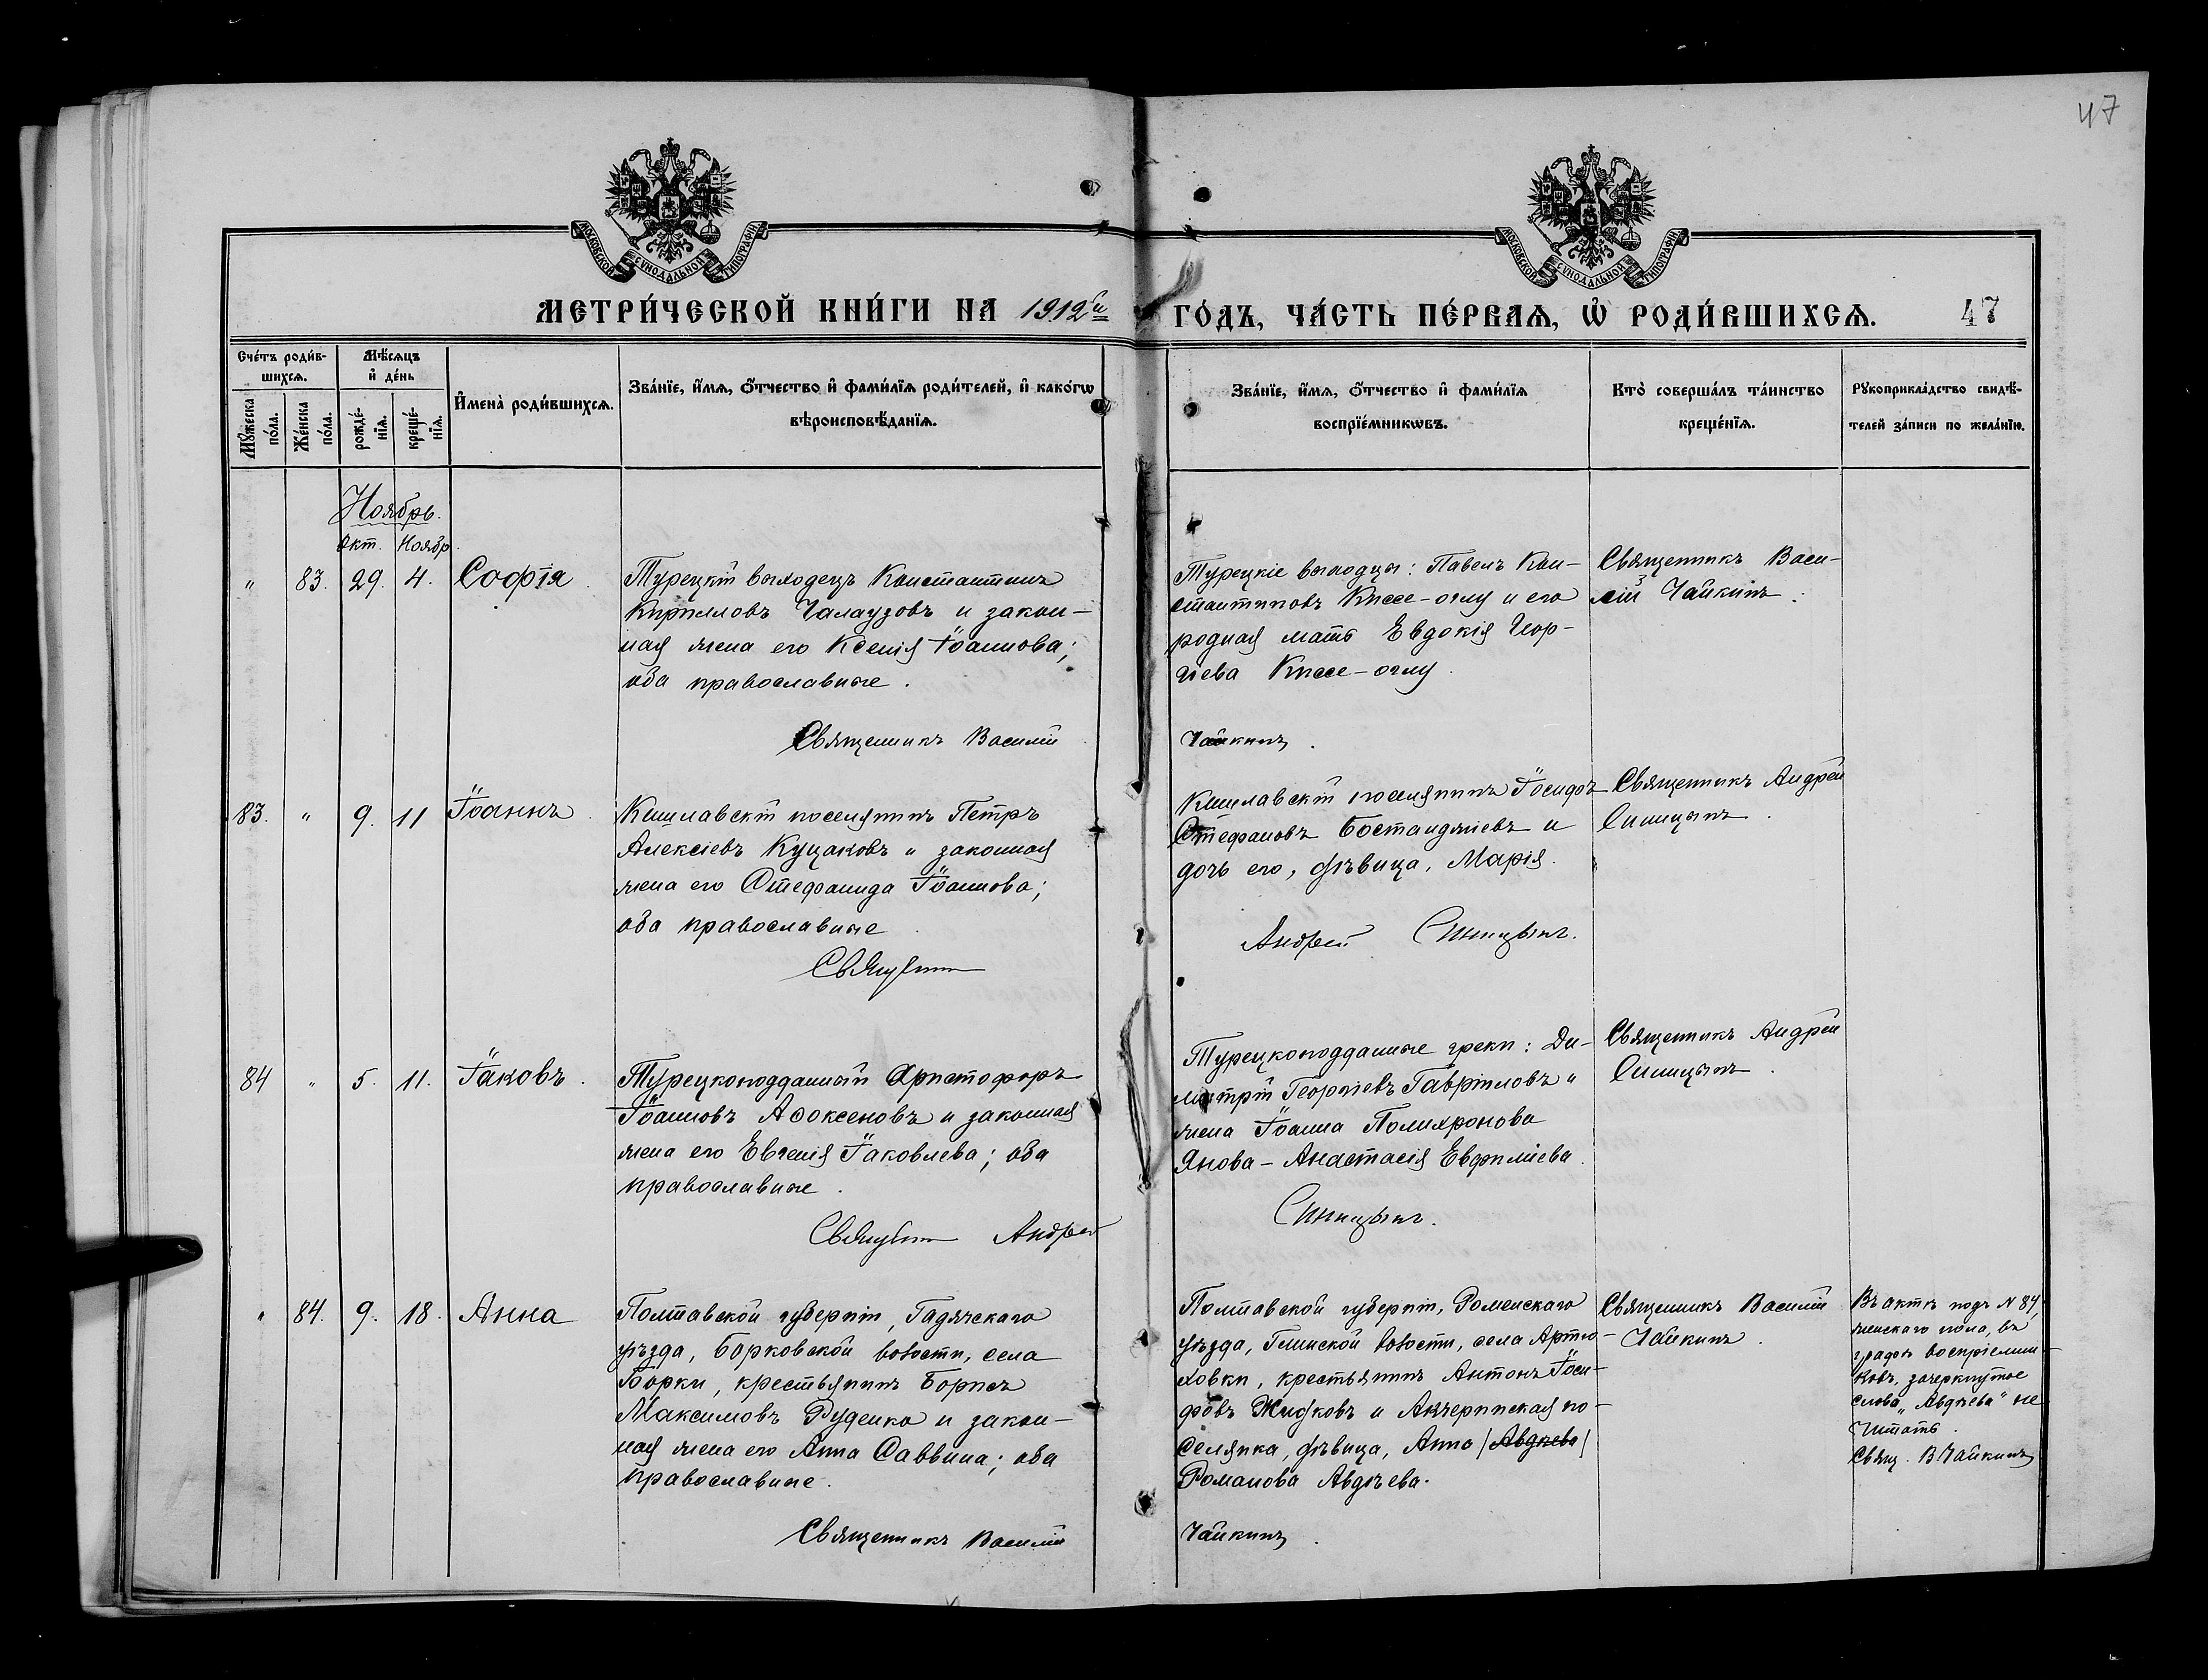 47
МОСКОВСКОЙ СѴНОДАЛЬНОЙ ТИПОГРАФІИ
МОСКОВСКОЙ СѴНОДАЛЬНОЙ ТИПОГРАФІИ
МЕТРИ́ЧЕСКОЙ КНИ́ГИ НА 1912й
ГО́ДЪ, ЧА́СТЬ ПЕ́РВАѦ, Ѡ҆ РОДИ́ВШИХСѦ. 47
Сче́тъ роди́в-
шихсѧ.
Мꙋ́жеска по́ла.
Же́нска по́ла.
Мѣ́сѧцъ
и҆ де́нь
рожде́-
нїѧ.
креще́-
нїѧ.
И҆мена̀ роди́вшихсѧ.
Зва́нїе, и҆́мѧ, ѻ҆́тчество и҆ фами́лїѧ роди́телей, и҆ како́гѡ
вѣроисповѣ́данїѧ.
Зва́нїе, и҆́мѧ, ѻ҆́тчество и҆ фами́лїѧ
воспрїе́мникѡвъ.
Кто̀ соверша́лъ та́инство
креще́нїѧ.
Рꙋкоприкла́дство свидѣ́-
телей за́писи по жела́нїю.
Ноябрь.
Окт. Ноябр.
" 83. 29. 4. Софія.
Турецкій выходецъ Константинъ
Кирилловъ Чалаузовъ и закон-
ная жена его Ксенія Іоаннова;
оба православные.
Священникъ Василій
Турецкіе выходцы: Павелъ Кон-
стантиновъ Кисse-оглу и его
родная мать Евдокія Геор-
гіева Киссе-оглу.
Чайкинъ.
Священникъ Васи-
лій Чайкинъ.
83. " 9. 11 Іоаннъ.
Кишлавскій поселянинъ Петръ
Алексіевъ Куцаковъ и законная
жена его Стефанида Іоаннова;
оба православные.
Священникъ
Кишлавскій поселянинъ Іосифъ
Стефановъ Бостанджіевъ и
дочь его, дѣвица, Марія.
Андрей Синицынъ.
Священникъ Андрей
Синицынъ.
84 " 5. 11. Іаковъ.
Турецкоподданный Христофоръ
Іоанновъ Авксеновъ и законная
жена его Евгенія Іаковлева; оба
православные.
Священникъ Андрей
Турецкоподданные греки: Ди-
митрій Георгіевъ Гавріиловъ и
жена Іоанна Полихронова
Янова - Анастасія Евфиміева.
Синицынъ.
Священникъ Андрей
Синицынъ.
" 84. 9. 18. Анна
Полтавской губерніи, Гадячскаго
уѣзда, Борковской волости, села
Борки, крестьянинъ Борисъ
Максимовъ Руденко и закон-
ная жена его Анна Саввина; оба
православные.
Священникъ Василій
Полтавской губерніи, Роменскаго
уѣзда, Глинской волости, села Артю-
ховки, крестьянинъ Антонъ Іоси-
фовъ Жидковъ и Анчерипская по-
селянка, дѣвица, Анна /Авдѣева/
Романова Авдѣева.
Чайкинъ.
Священникъ Василій
Чайкинъ.
Въ актѣ подъ № 84,
женскаго пола, въ
графѣ воспріемни-
ковъ, зачеркнутое
слово "Авдѣева" не
читать.
Свящ. В. Чайкинъ